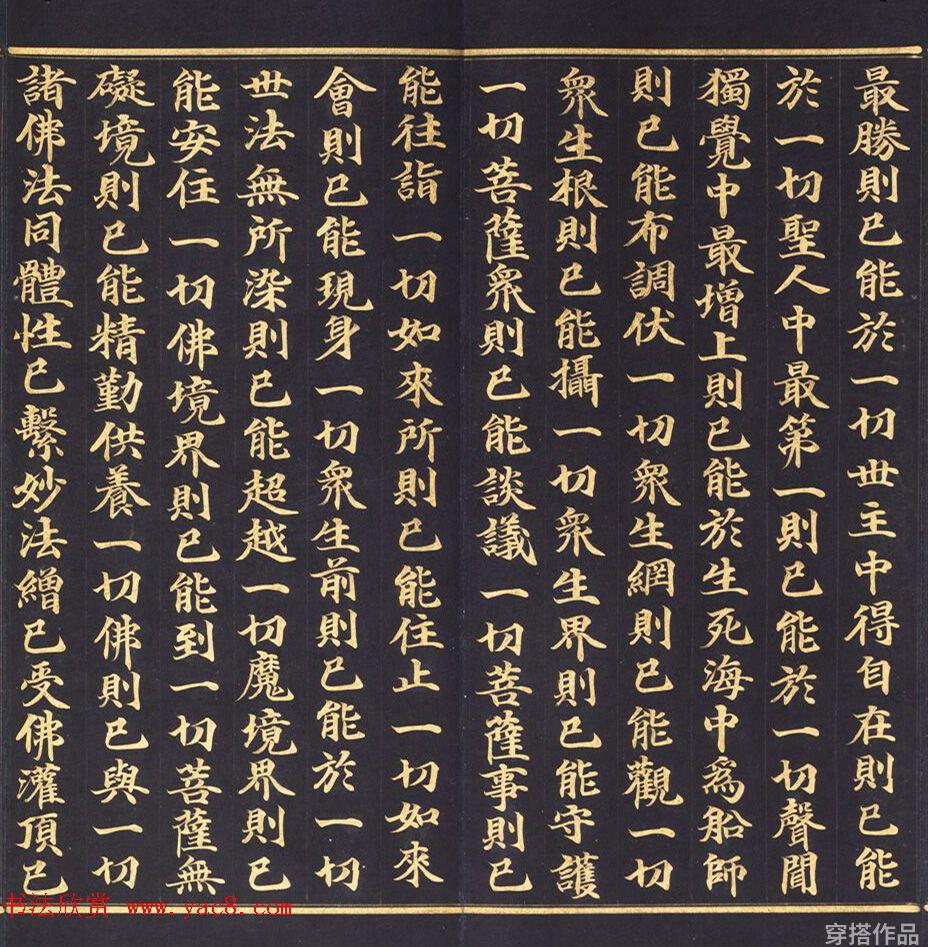 最勝則已能於一切世主中得自在則已能
於一切聖人中最第一則已能於一切聲聞
獨覺中最增上則已能於生死海中為船師
則已能布調伏一切眾生網則已能觀一切
眾生根則已能攝一切眾生界則已能守護
一切菩薩眾則已能談議一切菩薩事則已
能往詣一切如來所則已能住止一切如來
會則已能現身一切眾生前則已能於一切
世法無所染則已能超越一切魔境界則已
能安住一切佛境界則已能到一切菩薩無
礙境則已能精勤供養一切佛則已與一切
諸佛法同體性已繫妙法繒已受佛灌頂已
书法欣赏 www.yac8.com
穿搭作品